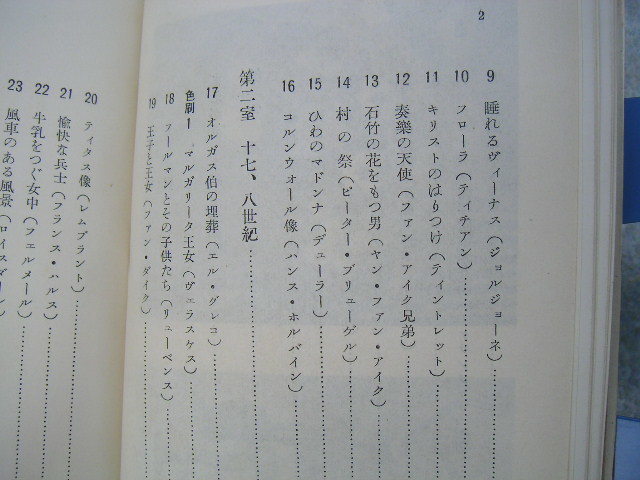 2
9 睡れるヴィーナス（ジョルジョーネ）
10 フローラ（ティチアン）
11 キリストのはりつけ（ティントレット）
12 奏樂の天使（ファン・アイク兄弟）
13 石竹の花をもつ男（ヤン・ファン・アイク）
14 村の祭（ピーター・ブリューゲル）
15 ひわのマドンナ（デューラー）
16 コルンウォール像（ハンス・ホルバイン）
第二室 十七、八世紀
17 オルガス伯の埋葬（エル・グレコ）
色刷1 マルガリータ王女（ヴェラスケス）
18 フールマンとその子供たち（リューベンス）
19 王子と王女（ファン・ダイク）
20 ティタス像（レムブラント）
21 愉快な兵士（フランス・ハルス）
22 牛乳をつぐ女中（フェルメール）
23 風車のある風景（ロイスダール